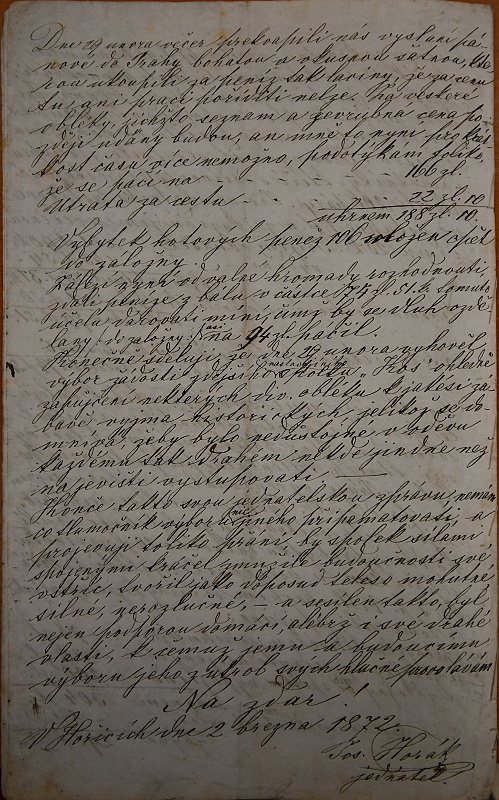 Dne 29 února večer překvapili nás vyslaní pá-
nové do Prahy bohatou a vkusnou šatnou, kte-
rou ukoupili za peníz tak laciný, že za cenu
tu, ani práci poříditi nelze. Za veškeré
obleky, jichžto seznam a zevrubná cena po-
zději udány budou, an mně to nyní pro krát-
kost času více nemožno, podotýkám toliko,
že se páčí na - - - 166 zl.
Útrata za cestu - - 22 zl. 10
úhrnem 188 zl. 10.
Zbytek hotových peněz 186 uložen opět
do záložny.
Záleží nyní od valné hromady rozhodnouti,
zdali peníze z bálu v částce 74 zl. 51 k. tomuto
účelu darovati míní, čímž by se dluh ozdě-
laný v záložny asi na 94 zl. páčil.
Konečně sděluji, že dne 29 února vyhověl
výbor žádosti zdejšího "Kos" ohledně
zapůjčení některých div. obleků k jakési zá-
bavě, vyjma historických jelikož se do-
mnívá, žeby bylo nedůstojné v oděvu
každému tak drahém někde jindne než
na jevišti vystupovati. —
Konče takto svou jednatelskou zprávu, nemám
co tlumočník výboru jiného připamatovati, a
projevuji toliko přání, by spolek silami
spojenými kráčel zmužile budoucnosti své
vstříc, tvořil jako doposud těleso mohutné,
silné, nerozlučné, — a sesílen takto, byl
nejen podporou domácí alebrž i své drahé
vlasti, k čemuž jemu a budoucímu
výboru jeho z útrob svých hlučné provolávám
Na zdar!
V Hořicích dne 2 března 1872.
Jos. Horák
jednatel.